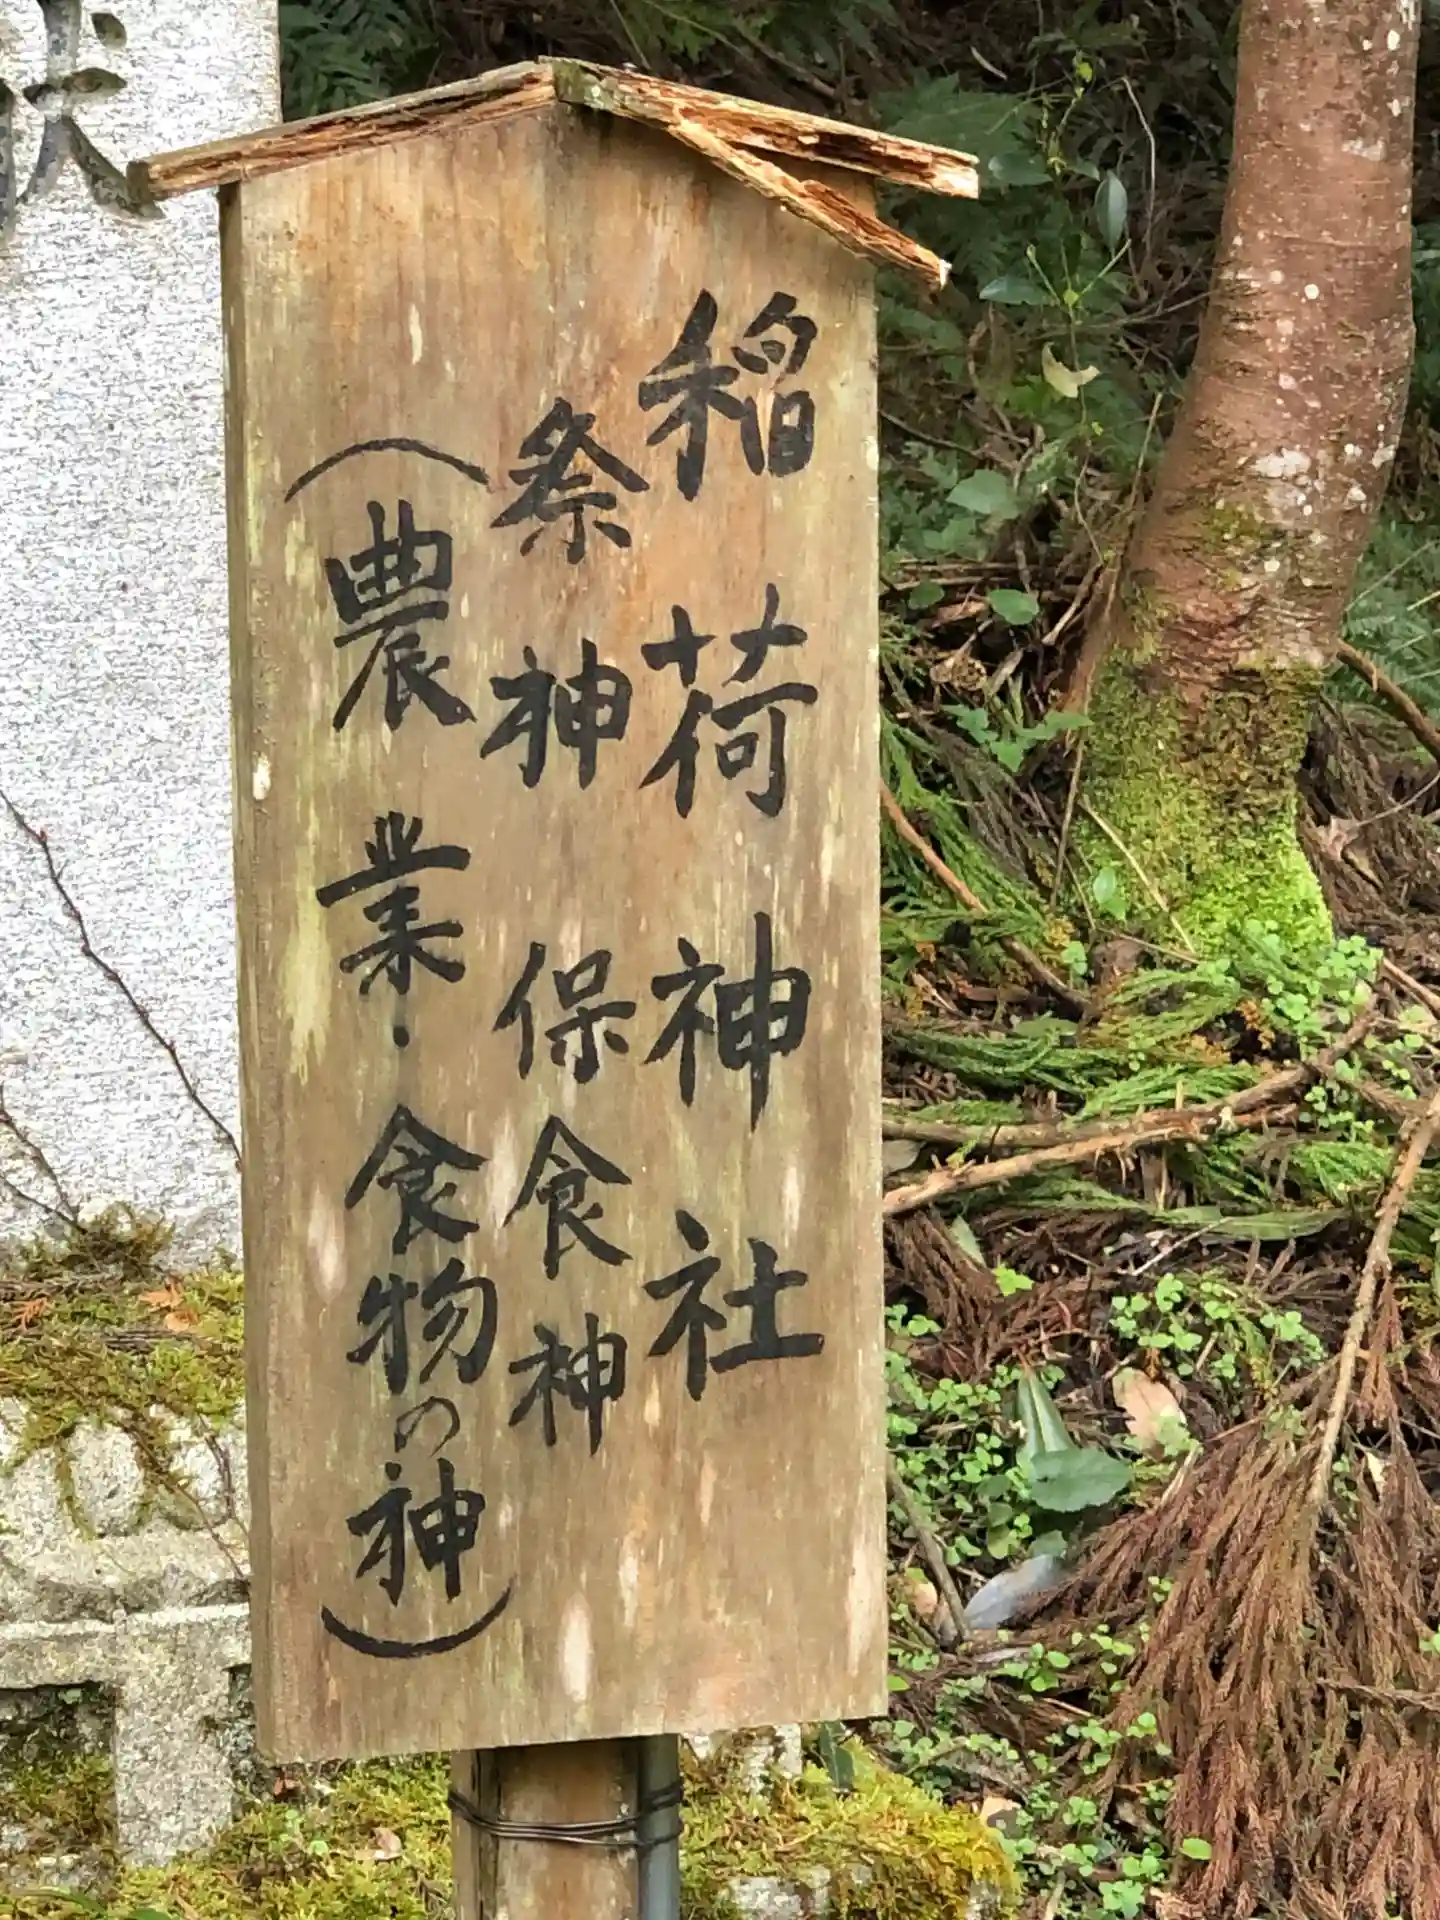 稲荷神社
祭神 保食神
（農業・食物の神）